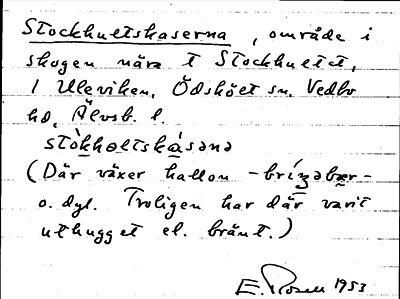 Stockhultskaserna, område i
skogen nära t Stockhultet,
i Uleviken, Ödsköet sn. Vedbo
hd, Älvsb. l.
stòkhɷltskàsənə
(Där växer hallon - bríŋəbær -
o. dyl. Troligen har där varit
uthugget el. bränt.)
E. Rosell 1953